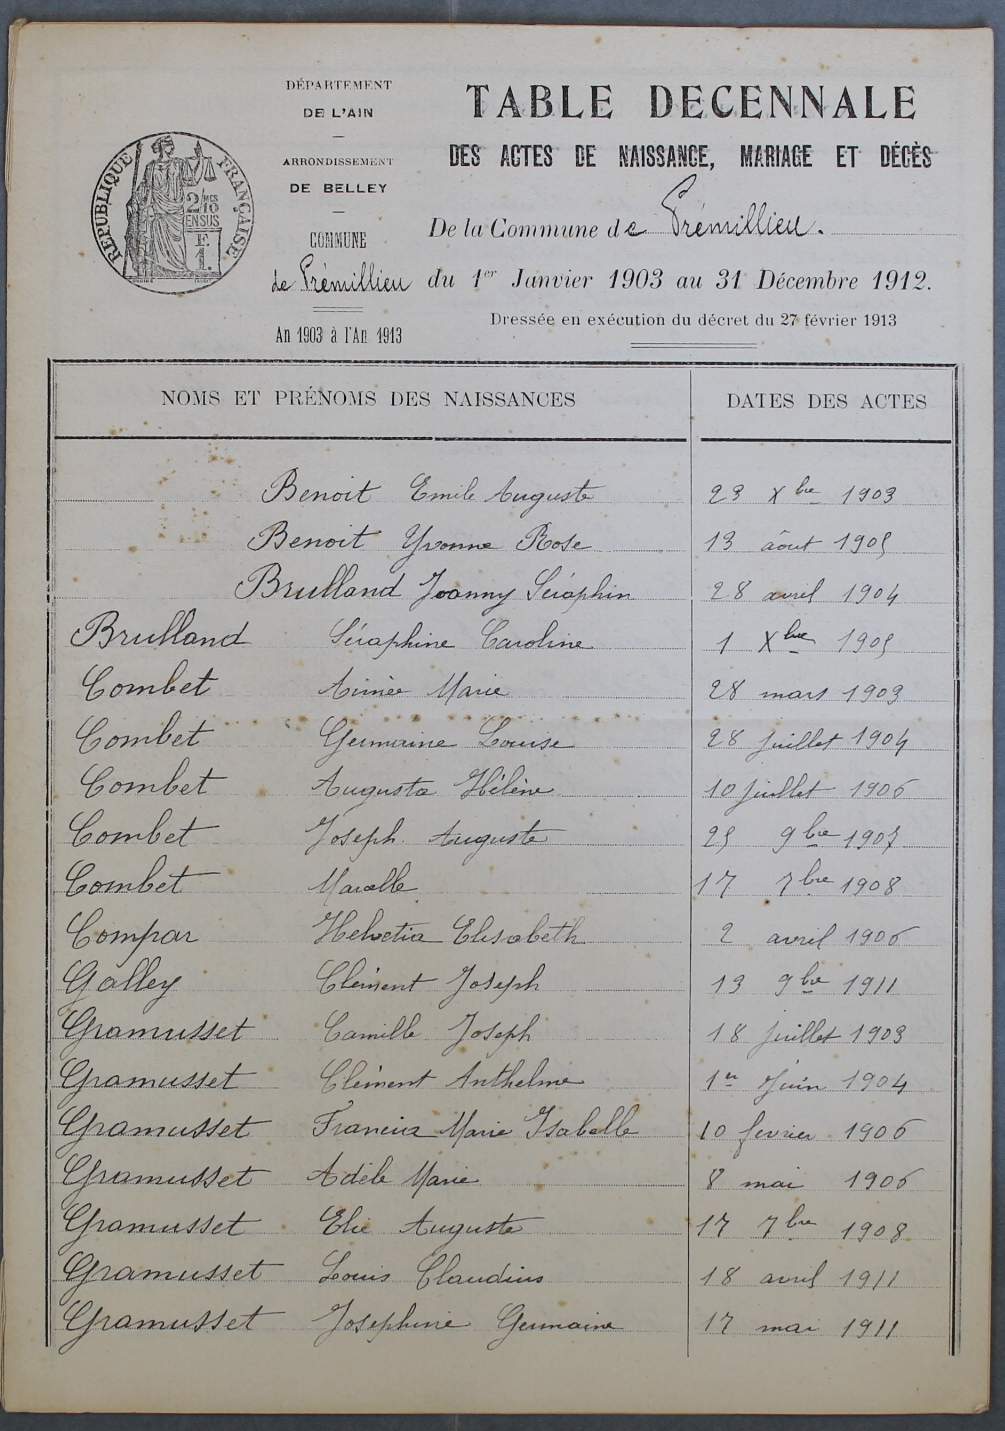 DÉPARTEMENT
DE L'AIN
ARRONDISSEMENT
DE BELLEY
COMMUNE
de Prémillieu
An 1903 à l'An 1913
RÉPUBLIQUE FRANÇAISE
2/10
EN SUS
F.
1.
TABLE DECENNALE
DES ACTES DE NAISSANCE, MARIAGE ET DÉCÈS
De la Commune de Prémillieu.
du 1er Janvier 1903 au 31 Décembre 1912.
Dressée en exécution du décret du 27 février 1913
NOMS ET PRÉNOMS DES NAISSANCES DATES DES ACTES
Benoit Emile Auguste 23 Xbre 1903
Benoit Yvonne Rose 13 âout 1905
Brulland Joanny Séraphin 28 avril 1904
Brulland Séraphine Caroline 1 Xbre 1905
Combet Aimée Marie 28 mars 1903
Combet Germaine Louise 28 juillet 1904
Combet Augusta Hélène 10 juillet 1906
Combet Joseph Auguste 25 9bre 1907
Combet Marcelle 17 7bre 1908
Compar Helvetia Elisabeth 2 avril 1906
Galley Clément Joseph 13 9bre 1911
Gramusset Camille Joseph 18 juillet 1903
Gramusset Clément Anthelme 1er Juin 1904
Gramusset Francia Marie Isabelle 10 fevrier 1906
Gramusset Adèle Marie 8 mai 1906
Gramusset Elie Auguste 17 7bre 1908
Gramusset Louis Claudius 18 avril 1911
Gramusset Joséphine Germaine 17 mai 1911